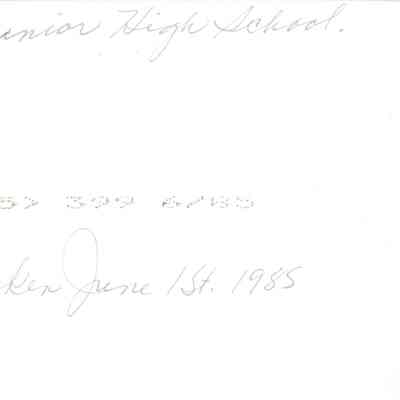 unior High School.
399
ken June 1st. 1985